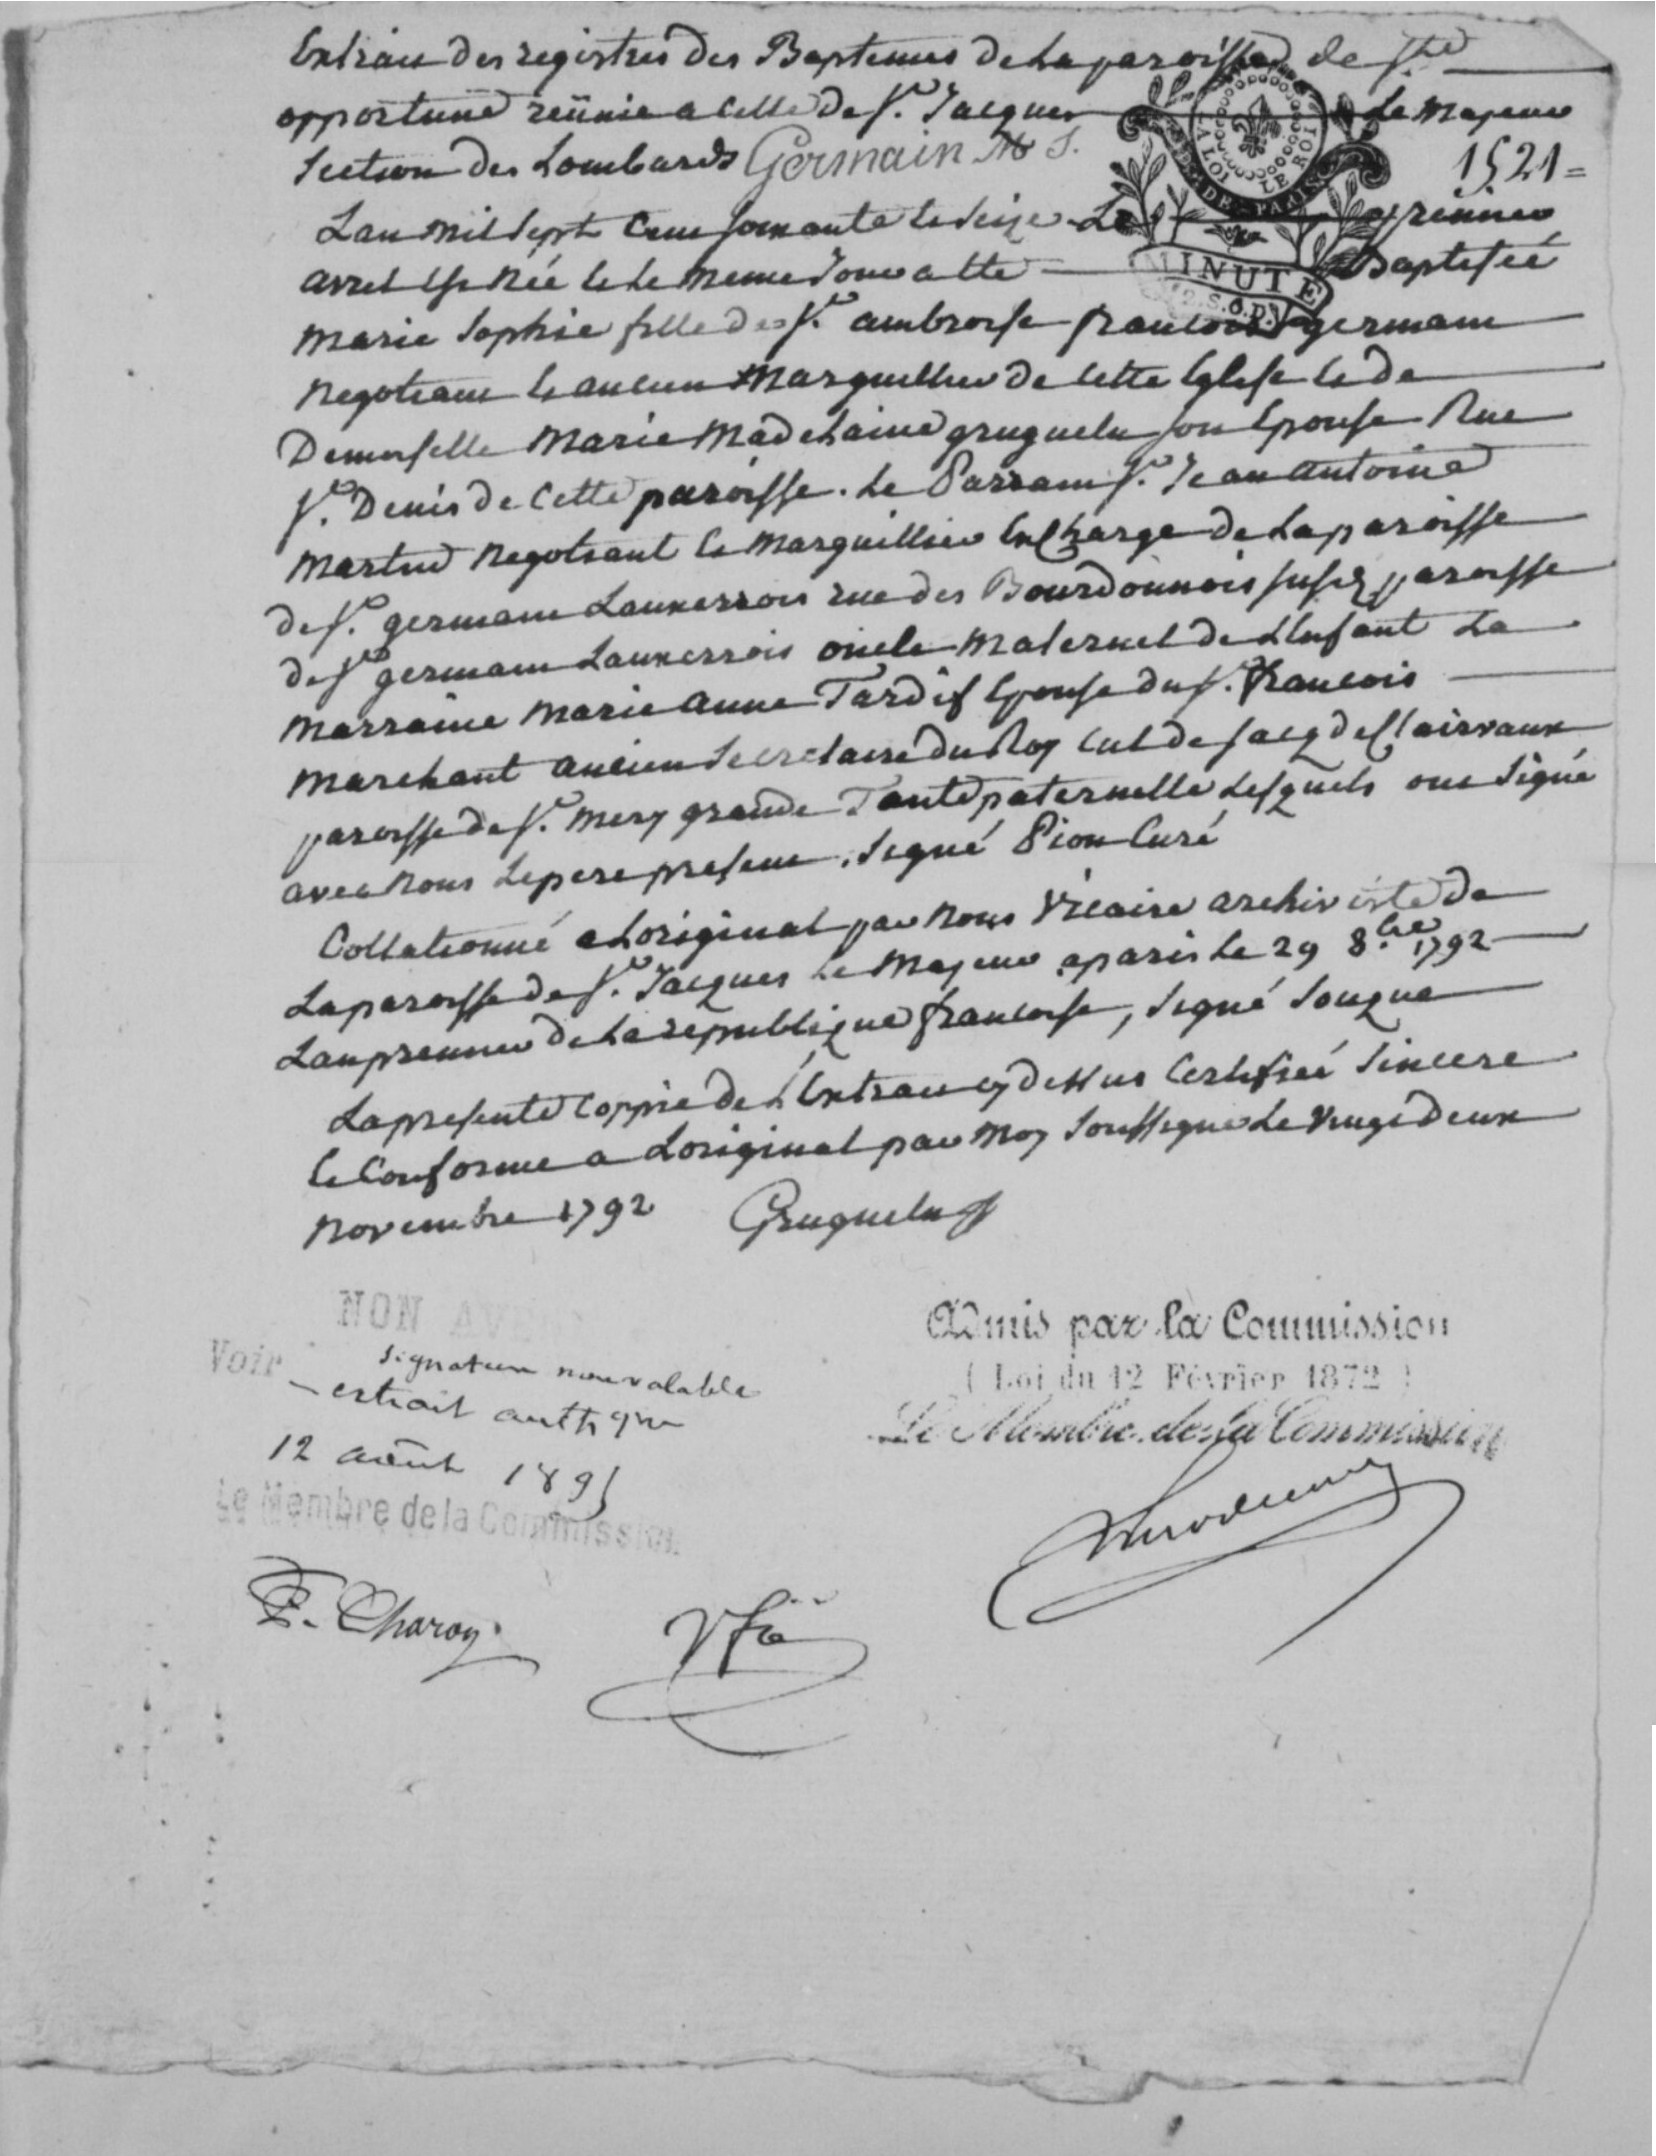 Extrait des registres des Baptemes de La paroisse de Ste
opportune reünie a Celle de St. Jacques Le Majeur
Section des Lombards Germain M S.
1521=
LA LOI LE ROI
Lan Mil Sept Cent soixante et seize Le premier
MINUTE
avril Est Née et Le meme Jour a Ete Baptiseé
12.S.O.D.
Marie Sophie fille de St. ambroise francois germain
Negotiant et ancien Marguillier de Cette Eglise et de
Demoiselle Marie Madelaine gruguelu son Epouse Rue
St. Denis de Cette paroisse. Le Parrain St. Jean antoine
Martin Negotiant et Marguillier En Charge de La paroisse
de St. germain Lauxerrois rue des Bourdonnois susd paroisse
de St germain Lauxerrois oncle Maternel de L'Enfant La
Marraine Marie Anne Tardif Epouse du St. francois
Marchant ancien Secretaire du Roy Cul de sacq de Clairvaux
paroisse de St. Mery grande Tante paternelle Lesquels ont Signé
avec Nous Le pere present. Signé Pion Curé
Collationné a Loriginal par Nous Vicaire archiviste de
La paroisse de St. Jacques Le Majeur a paris Le 29 8.bre 1792
Lan premier de La republique francoise, Signé Souque
La presente Coppie de L'Extrait cy dessus Certifieé Sincere
et Conforme a Loriginal par Moy Soussigné Le Vingt Deux
Novembre 1792 Gruguelu
NON AVENU
Admis par la Commission
Voir signature non valable
(Loi du 12 Février 1872)
– extrait auth que
Le Membre de la Commission
12 août 1895
Le Membre de la Commission
F. Charoy